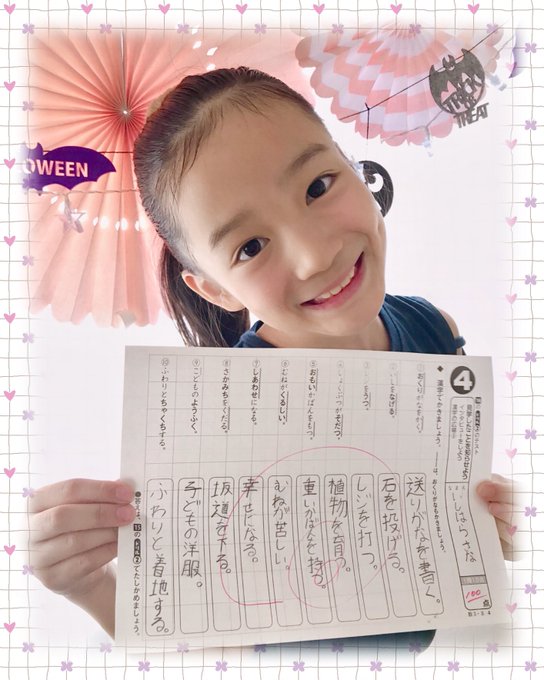 OWEEN
TRICK
OR
TREAT
4
見学したことを知らせよう
インタビューをしよう
漢字の広場②
いしはらさな
100
点
◆漢字でかきましょう。
①おくりがなをかく。
②いしをなげる。
③レジをうつ。
④しょくぶつがそだつ。
⑤おもいかばんをもつ。
⑥むねがくるしい。
⑦しあわせになる。
⑧さかみちをくだる。
⑨こどものようふく。
⑩ふわりとちゃくちする。
送りがなを書く。
石を投げる。
レジを打つ。
植物を育つ。
重いかばんを持つ。
むねが苦しい。
幸せになる。
坂道を下る。
子どもの洋服。
ふわりと着地する。